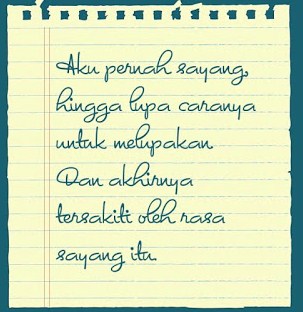 Aku pernah sayang,
hingga lupa caranya
untuk melupakan.
Dan akhirnya
tersakiti oleh rasa
sayang itu.